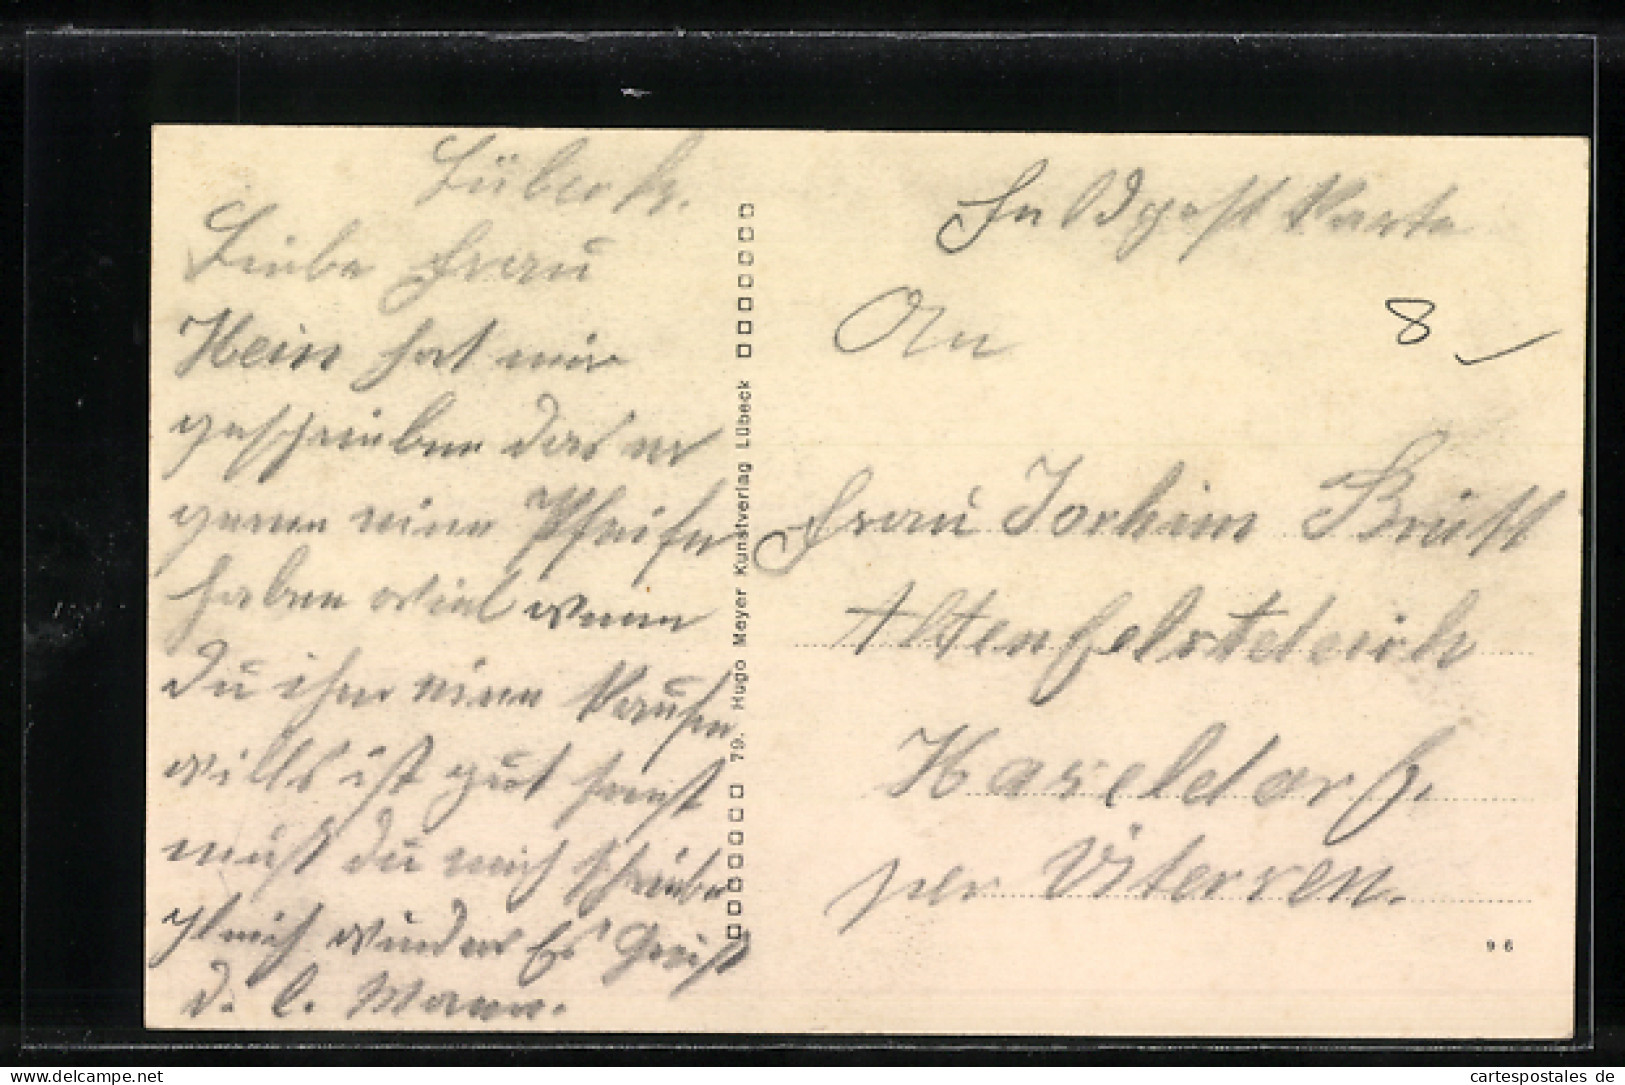 Lübeck.
Liebe Frau
Hein hat mir
geschrieben das er
gerne eine Pfeife
haben wiel wenn
du ihm eine Kaufen
wills ist gut sonst
mußt du mich schreibe
gleich wieder Es Grüßt
d. l. Mann.
79. Hugo Meyer Kunstverlag Lübeck
Feldpost Karte
An
8
Frau Jochim Brütt
Altenfelsdeich
Haseldorf.
per Üterssen.
96
www.delcampe.net
cartespostales de